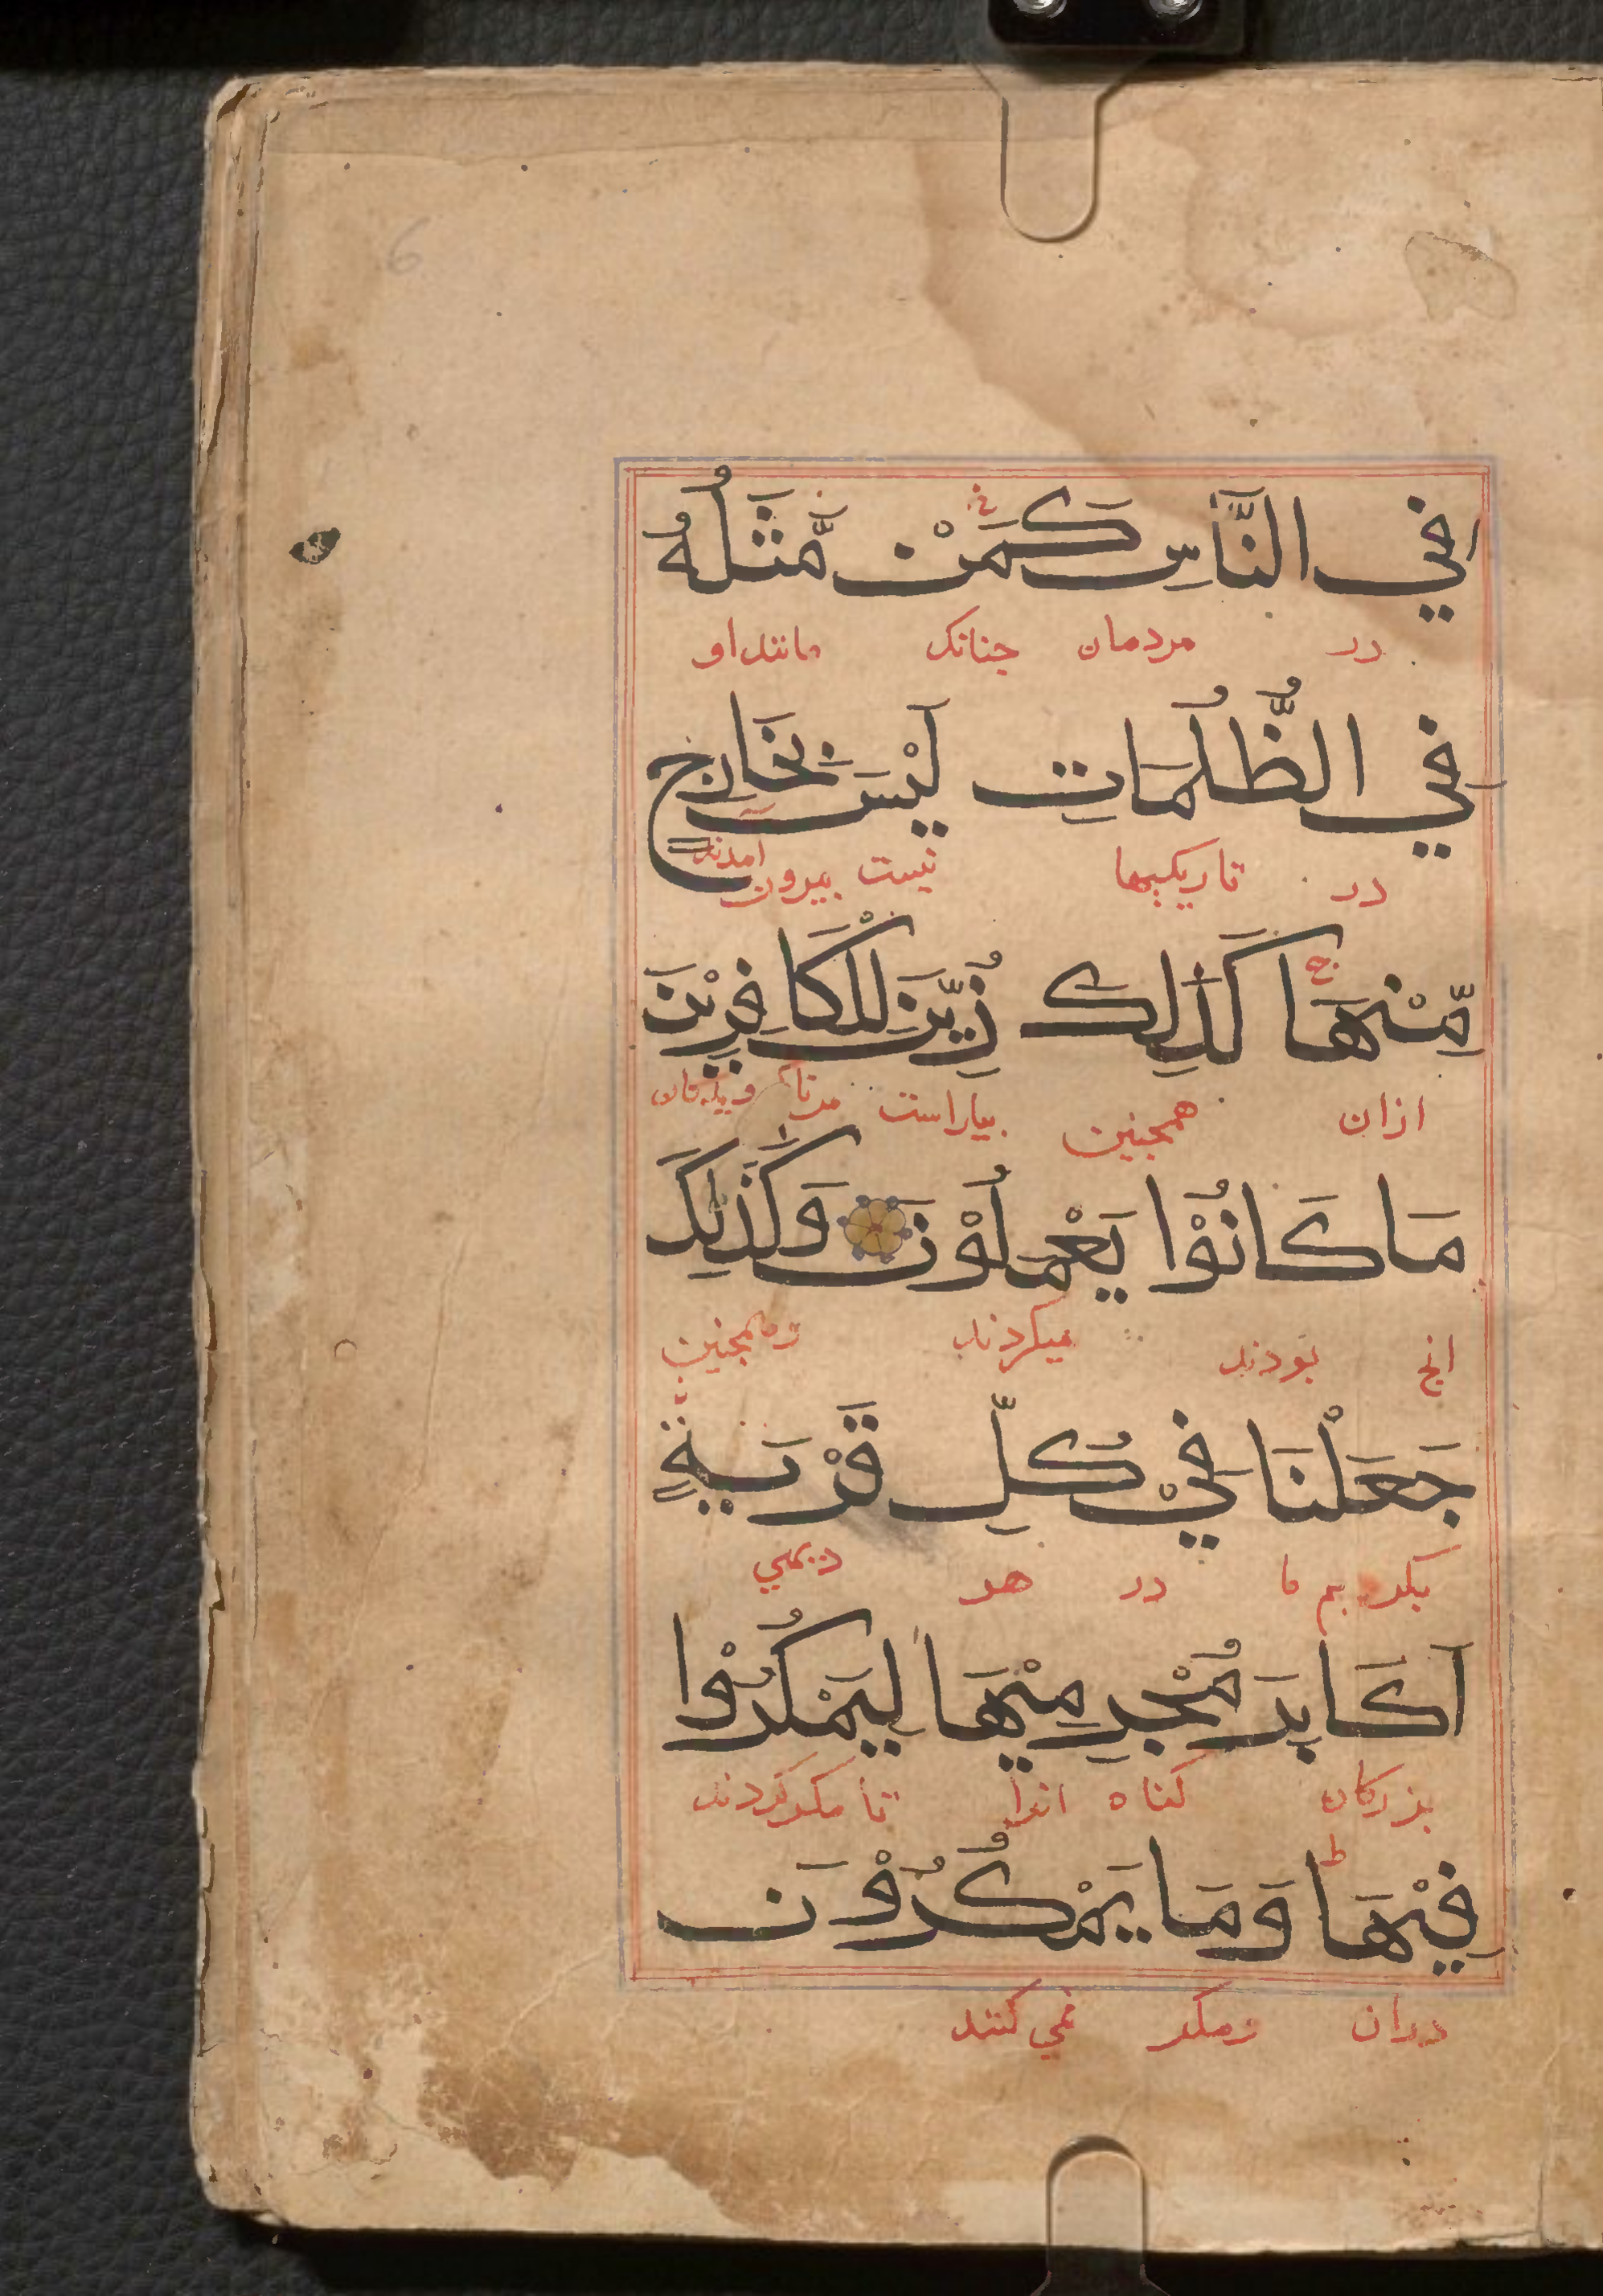 فِي النَّاسِ كَمَنْ مَّثَلُهُ
در مردمان جنانک مانند او
فِي الظُّلُمَاتِ لَيْسَ بِخَارِجٍ
در تاریکیها نیست بیرون امدند
مِّنْهَا كَذَلِكَ زُيِّنَ لِلْكَافِرِيْنَ
ازان همجنین بیاراست مرنا
مَا كَانُوْا يَعْمَلُوْنَ وَكَذَلِكَ
انج بودند میکردند وهمجنین
جَعَلْنَا فِيْ كُلِّ قَرْيَةٍ
بکردیم ما در هر دیهی
اَكَابِرَ مُجْرِمِيْهَا لِيَمْكُرُوْا
بزرکان کناه انرا تا مکر کردند
فِيْهَا وَمَا يَمْكُرُوْنَ
دران ومکر نمی کنند